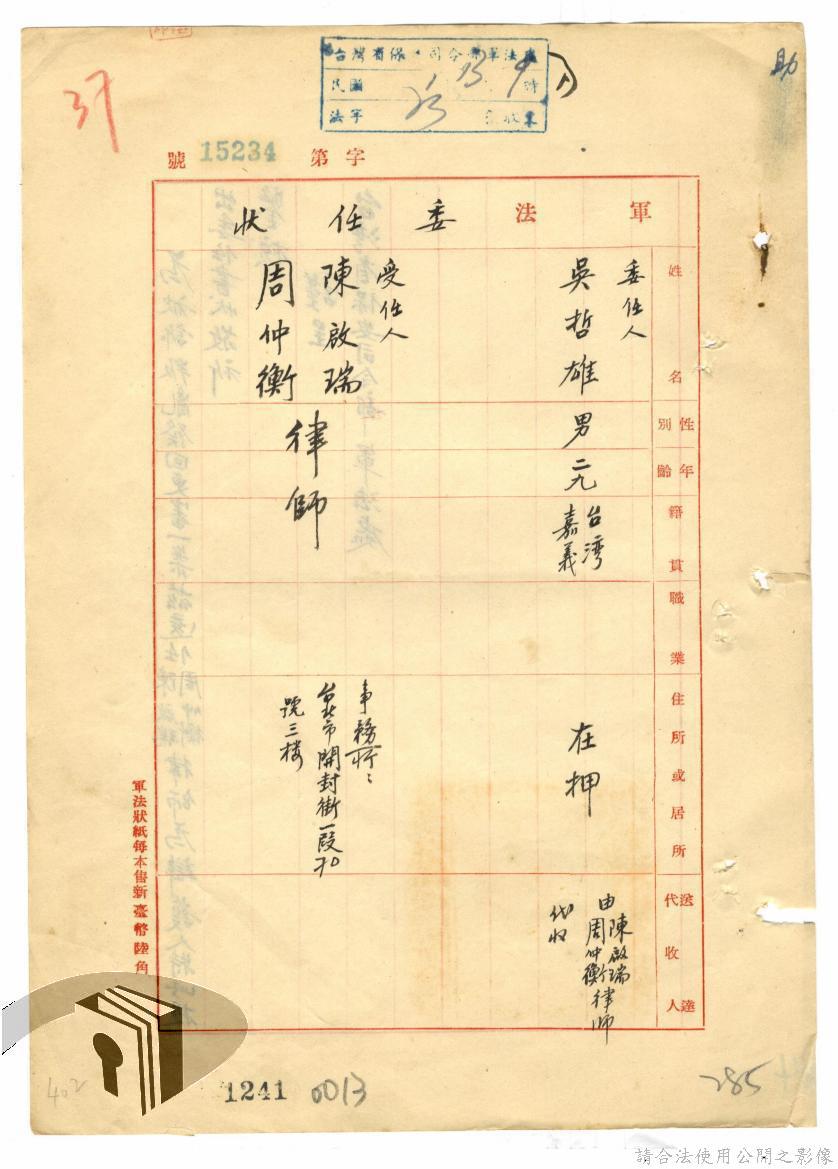 助
37
台灣省保安司令部軍法處
民國
時
法字
收案
字第15234號
軍法委任狀
姓名
性別
年齡
籍貫
職業
住所或居所
送達代收人
委任人
吳哲雄
男
二九
台灣
嘉義
在押
由陳啟瑞
周仲衡律師
代收
受任人
陳啟瑞
周仲衡
律師
事務所：
台北市開封街一段70
號三樓
軍法狀紙每本售新臺幣陸角
402
1241
0013
285
請合法使用公開之影像